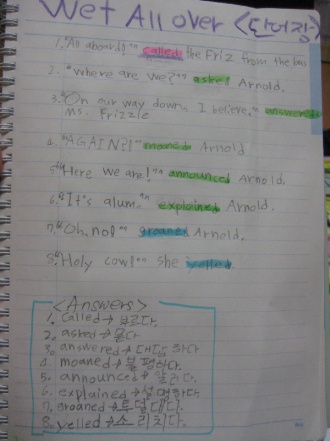 Wet All over <단어장>
1. "All aboard!" called the Friz from the bus
2. "Where are we?" asked Arnold.
3. "On our way down, I believe," answered
Ms. Frizzle
4. "AGAIN?!" moaned Arnold
5. "Here we are!" announced Arnold.
6. "It's alum," explained Arnold.
7. "Oh, no!" groaned Arnold.
8. "Holy cow!" she yelled.
<Answers>
1. called→부르다.
2. asked→묻다.
3. answered→대답하다
4. moaned→불평하다.
5. announced→알리다.
6. explained→설명하다.
7. groaned→투덜대다.
8. yelled→소리치다.